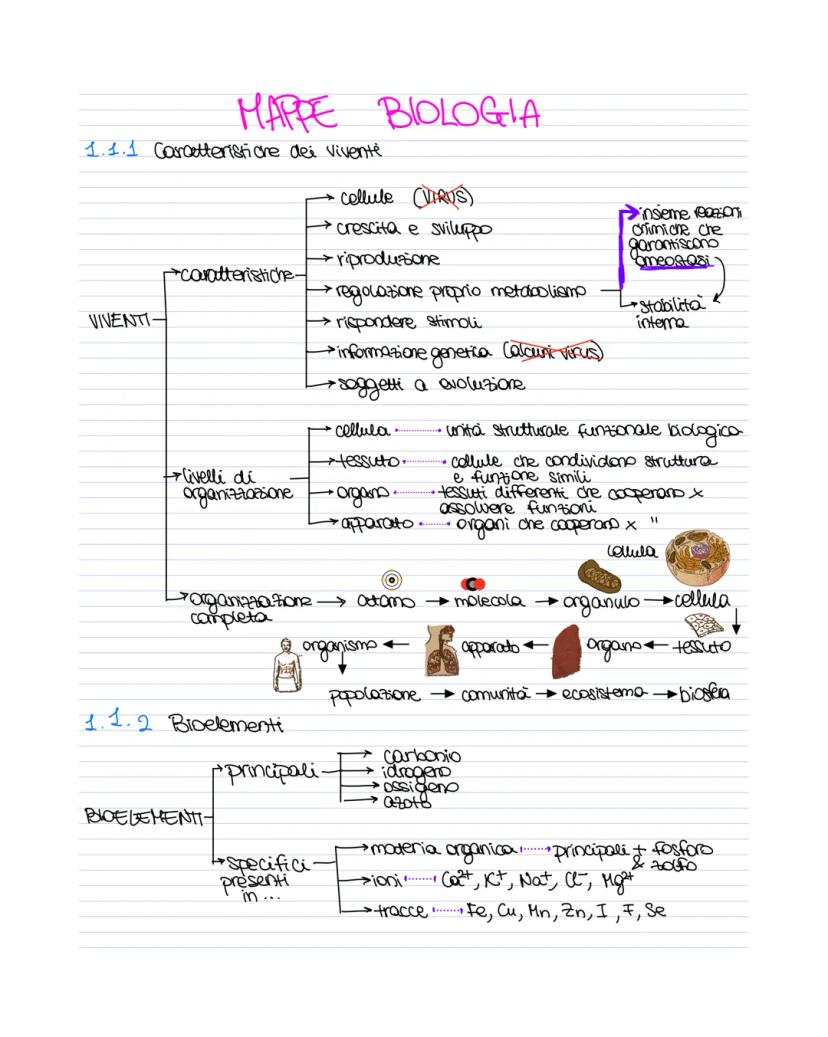 MAPPE BIOLOGIA
1.1.1 Caratteristiche dei viventi
cellule (VIRUS)
crescita e sviluppo
riproduzione
caratteristiche
regolazione proprio metabolismo
insieme reazioni
chimiche che
garantiscono
omeostasi
stabilità
interna
VIVENTI
rispondere stimoli
informazione genetica (alcuni virus)
soggetti a evoluzione
livelli di
organizzazione
cellula unità strutturale funzionale biologica
tessuto cellule che condividono struttura
e funzione simili
organo tessuti differenti che cooperano x
assolvere funzioni
apparato organi che cooperano x "
cellula
organizzazione
completa
atomo molecola organulo cellula
organismo apparato organo tessuto
popolazione comunità ecosistema biosfera
1.1.2 Bioelementi
principali
carbonio
idrogeno
ossigeno
azoto
BIOELEMENTI
specifici
presenti
in ...
materia organica principali + fosforo
& zolfo
ioni Ca²⁺, K⁺, Na⁺, Cl⁻, Mg²⁺
tracce Fe, Cu, Mn, Zn, I, F, Se